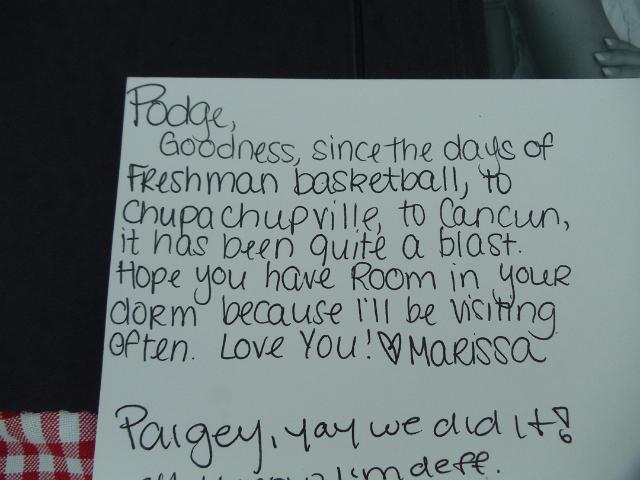 Podge,
Goodness, since the days of
Freshman basketball, to
Chupachupville, to Cancun,
it has been quite a blast.
Hope you have Room in your
dorm because I'll be visiting
often. Love You! ♡ Marissa
Paigey, yay we did it!
I'm deff.